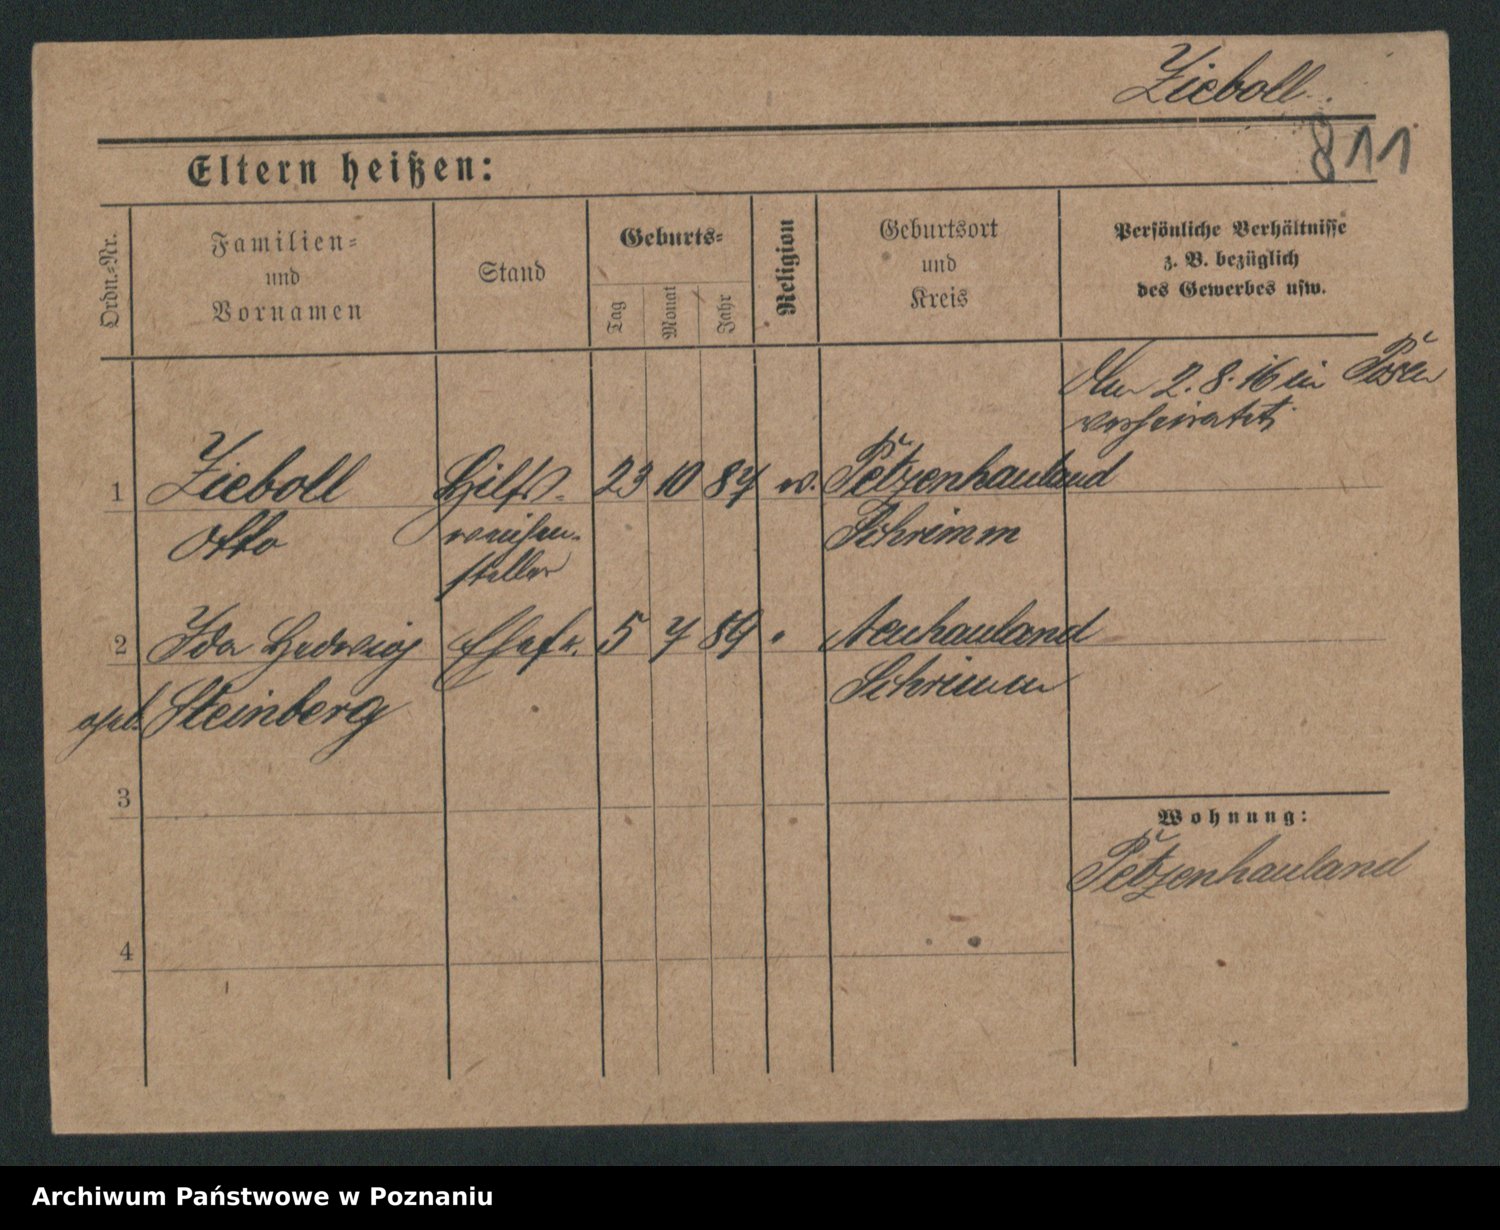 Zieboll.
811
Eltern heißen:
Ordn.=Nr.
Familien=
und
Vornamen
Stand
Geburts=
Tag
Monat
Jahr
Religion
Geburtsort
und
Kreis
Persönliche Verhältnisse
z. B. bezüglich
des Gewerbes usw.
Am 2. 8. 16 in Posen
verheiratet.
1 Zieboll Hilfs- 23 10 87 Petzenhauland
Otto weichen- Schrimm
steller
2 Ida Hedwig Ehefr. 5 7 89 " Neuhauland
geb. Steinberg Schrimm
3
Wohnung:
Petzenhauland
4
Archiwum Państwowe w Poznaniu